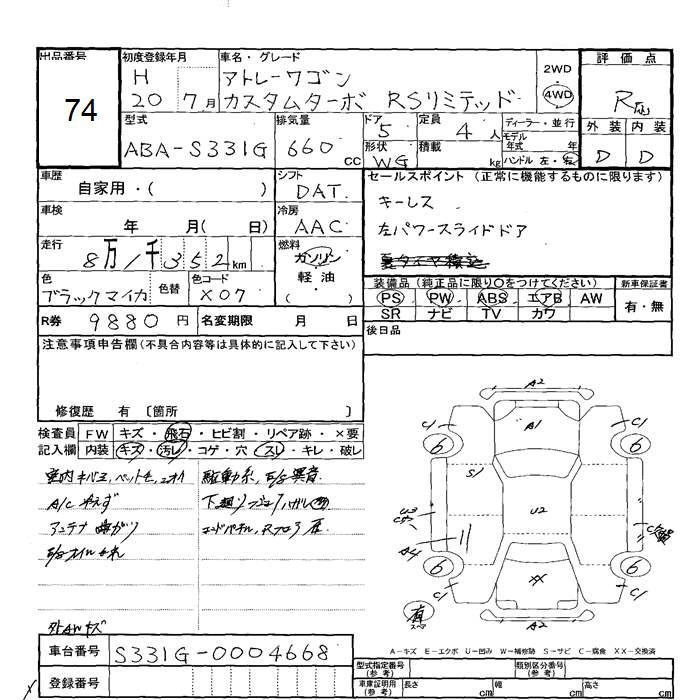 出品番号
74
初度登録年月
H
20 7月
車名・グレード
アトレーワゴン
カスタムターボ RSリミテッド
2WD
4WD
評価点
R
外装 内装
D D
型式
ABA-S331G
排気量
660 cc
ドア
5
形状
WG
定員
4人
積載
kg
ディーラー・並行
モデル年式 年式
ハンドル 左・右
車歴
自家用・( )
シフト
DAT.
セールスポイント (正常に機能するものに限ります)
キーレス
左パワースライドドア
車検
年 月( 日)
冷房
AAC
走行
8万1千352km
燃料
ガソリン
軽油
( )
色
ブラックマイカ
色替
色コード
X07
装備品 (純正品に限り○をつけてください)
新車保証書
PS PW ABS エアB AW
SR ナビ TV カワ
有・無
R券 9880円
名変期限 月 日
後日品
注意事項申告欄 (不具合内容等は具体的に記入して下さい)
修復歴 有 〔箇所 〕
検査員
記入欄
FW キズ・飛石・ヒビ割・リペア跡・×要
内装 キズ・汚レ・コゲ・穴・スレ・キレ・破レ
A/C 冷えず
アンテナ曲がり
外AWキズ
車台番号 S331G-0004668
登録番号
A2
A1
C1
C1
6
6
S1
U2
U3
A4
6
6
XX
C1
C1
有
スペア
A2
A-キズ E-エクボ U-凹み W-補修跡 S-サビ C-腐食 XX-交換済
型式指定番号
(参考)
類別区分番号
(参考)
車庫証明用
(参考)
長さ cm
幅 cm
高さ cm